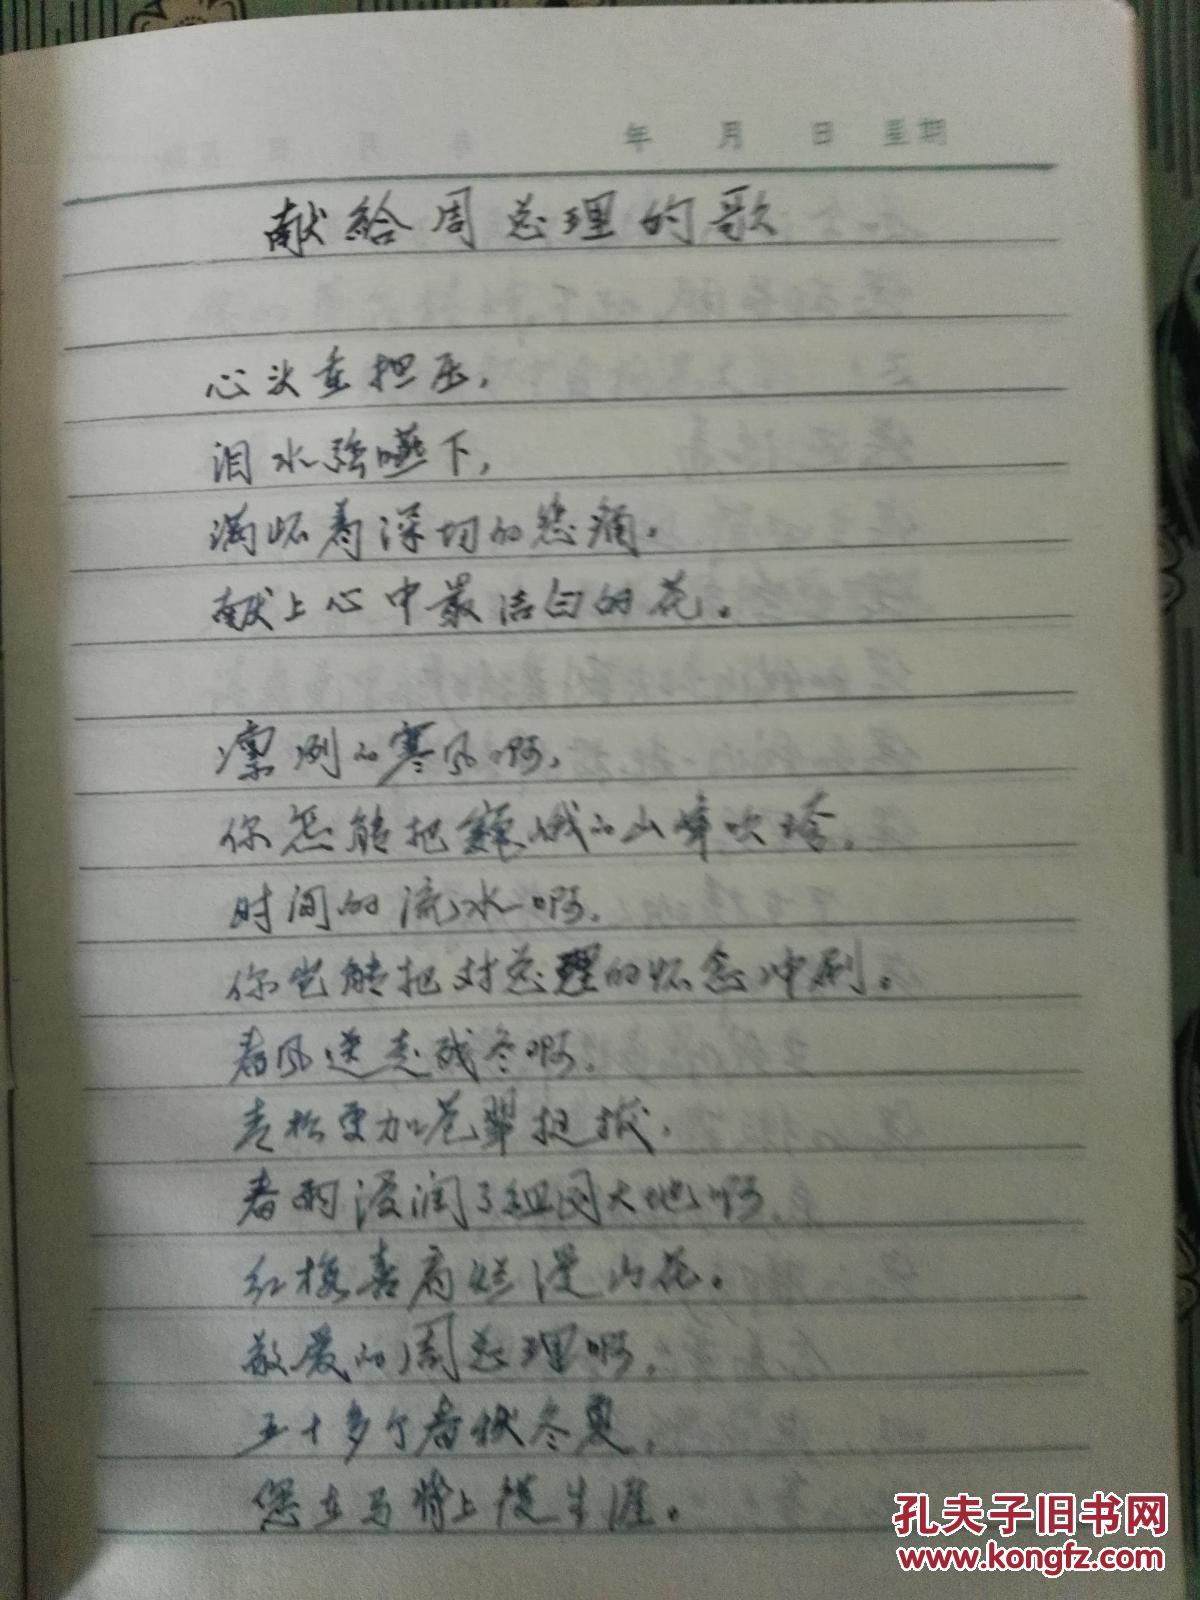 年 月 日 星期
献給周总理的歌
心头重担压，
泪水强咽下，
满怀着深切的悲痛，
献上心中最洁白的花。
凛冽的寒风啊，
你怎能把巍峨的山峰吹垮，
时间的流水啊，
你岂能把对总理的怀念冲刷。
春风送走残冬啊，
青松更加苍翠挺拔，
春雨浸润了祖国大地啊，
红梅喜看烂漫山花。
敬爱的周总理啊，
五十多个春秋冬夏，
您在马背上度生涯。
孔夫子旧书网
www.kongfz.com